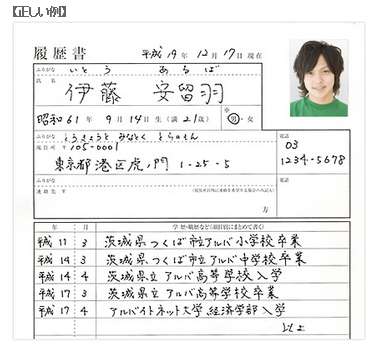 【正しい例】
履歴書 平成 19 年 12 月 17 日 現在
ふりがな いとう あるば
氏名 伊藤 安留羽
昭和 61 年 9 月 14 日生 (満 21 歳) ※ 男・女
ふりがな とうきょうと みなとく とらのもん 電話
現住所 〒 105-0001 03
東京都港区虎ノ門 1-25-5 1234-5678
ふりがな 電話
連絡先 〒
方
年 月 学歴・職歴など(項目別にまとめて書く)
平成 11 3 茨城県つくば市立アルバ小学校卒業
平成 14 3 茨城県つくば市立アルバ中学校卒業
平成 14 4 茨城県立アルバ高等学校入学
平成 17 3 茨城県立アルバ高等学校卒業
平成 17 4 アルバイトネット大学経済学部入学
以上